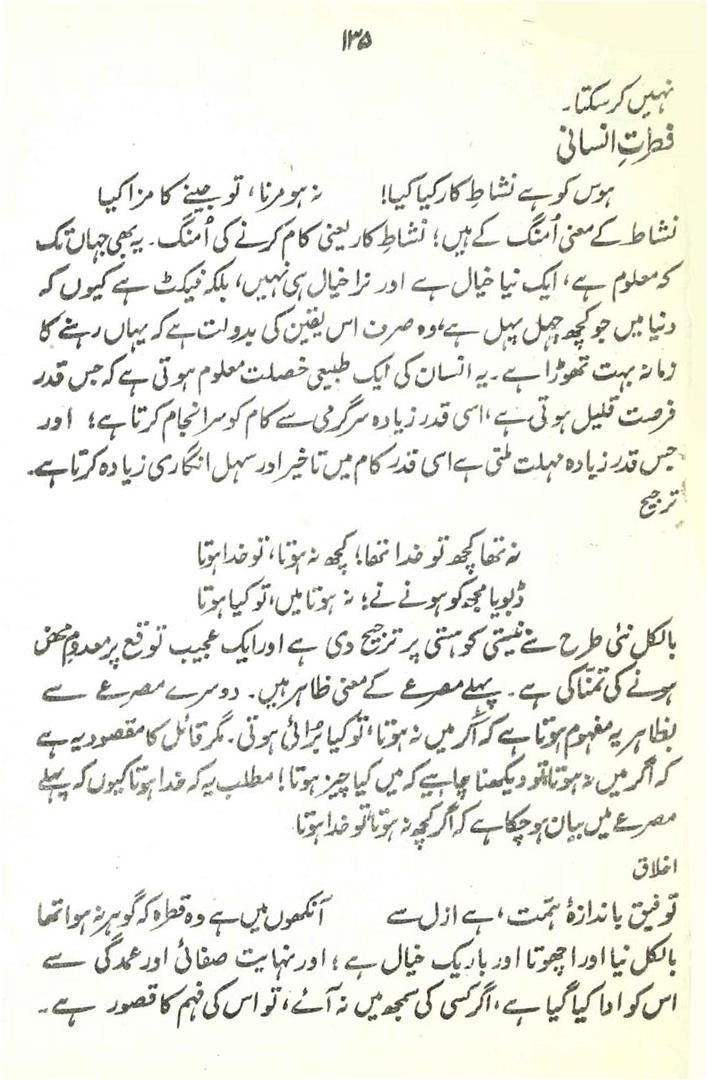 ۱۳۵
نہیں کر سکتا۔
فطرتِ انسانی
ہوس کو ہے نشاطِ کار کیا کیا! نہ ہو مرنا، تو جینے کا مزا کیا
نشاط کے معنی اُمنگ کے ہیں؛ نشاطِ کار یعنی کام کرنے کی اُمنگ۔ یہ بھی جہاں تک
کہ معلوم ہے، ایک نیا خیال ہے اور نرا خیال ہی نہیں، بلکہ فیکٹ ہے کیوں کہ
دنیا میں جو کچھ چہل پہل ہے، وہ صرف اس یقین کی بدولت ہے کہ یہاں رہنے کا
زمانہ بہت تھوڑا ہے۔ یہ انسان کی ایک طبیعی خصلت معلوم ہوتی ہے کہ جس قدر
فرصت قلیل ہوتی ہے، اسی قدر زیادہ سرگرمی سے کام کو سرانجام کرتا ہے؛ اور
جس قدر زیادہ مہلت ملتی ہے اسی قدر کام میں تاخیر اور سہل انگاری زیادہ کرتا ہے۔
ترجیح
نہ تھا کچھ تو خدا تھا؛ کچھ نہ ہوتا، تو خدا ہوتا
ڈبویا مجھ کو ہونے نے؛ نہ ہوتا میں، تو کیا ہوتا
بالکل نئی طرح سے نیستی کو ہستی پر ترجیح دی ہے اور ایک عجیب توقع پر معدومِ محض
ہونے کی تمنّا کی ہے۔ پہلے مصرعے کے معنی ظاہر ہیں۔ دوسرے مصرعے سے
بظاہر یہ مفہوم ہوتا ہے کہ اگر میں نہ ہوتا، تو کیا بُرائی ہوتی۔ مگر قائل کا مقصود یہ ہے
کہ اگر میں نہ ہوتا، تو دیکھنا چاہیے کہ میں کیا چیز ہوتا! مطلب یہ کہ خدا ہوتا کیوں کہ پہلے
مصرعے میں بیان ہو چکا ہے کہ اگر کچھ نہ ہوتا تو خدا ہوتا
اخلاق
توفیق باندازۂ ہمّت، ہے ازل سے آنکھوں میں ہے وہ قطرہ کہ گوہر نہ ہوا تھا
بالکل نیا اور اچھوتا اور باریک خیال ہے؛ اور نہایت صفائی اور عمدگی سے
اس کو ادا کیا گیا ہے، اگر کسی کی سمجھ میں نہ آئے، تو اس کی فہم کا قصور ہے۔